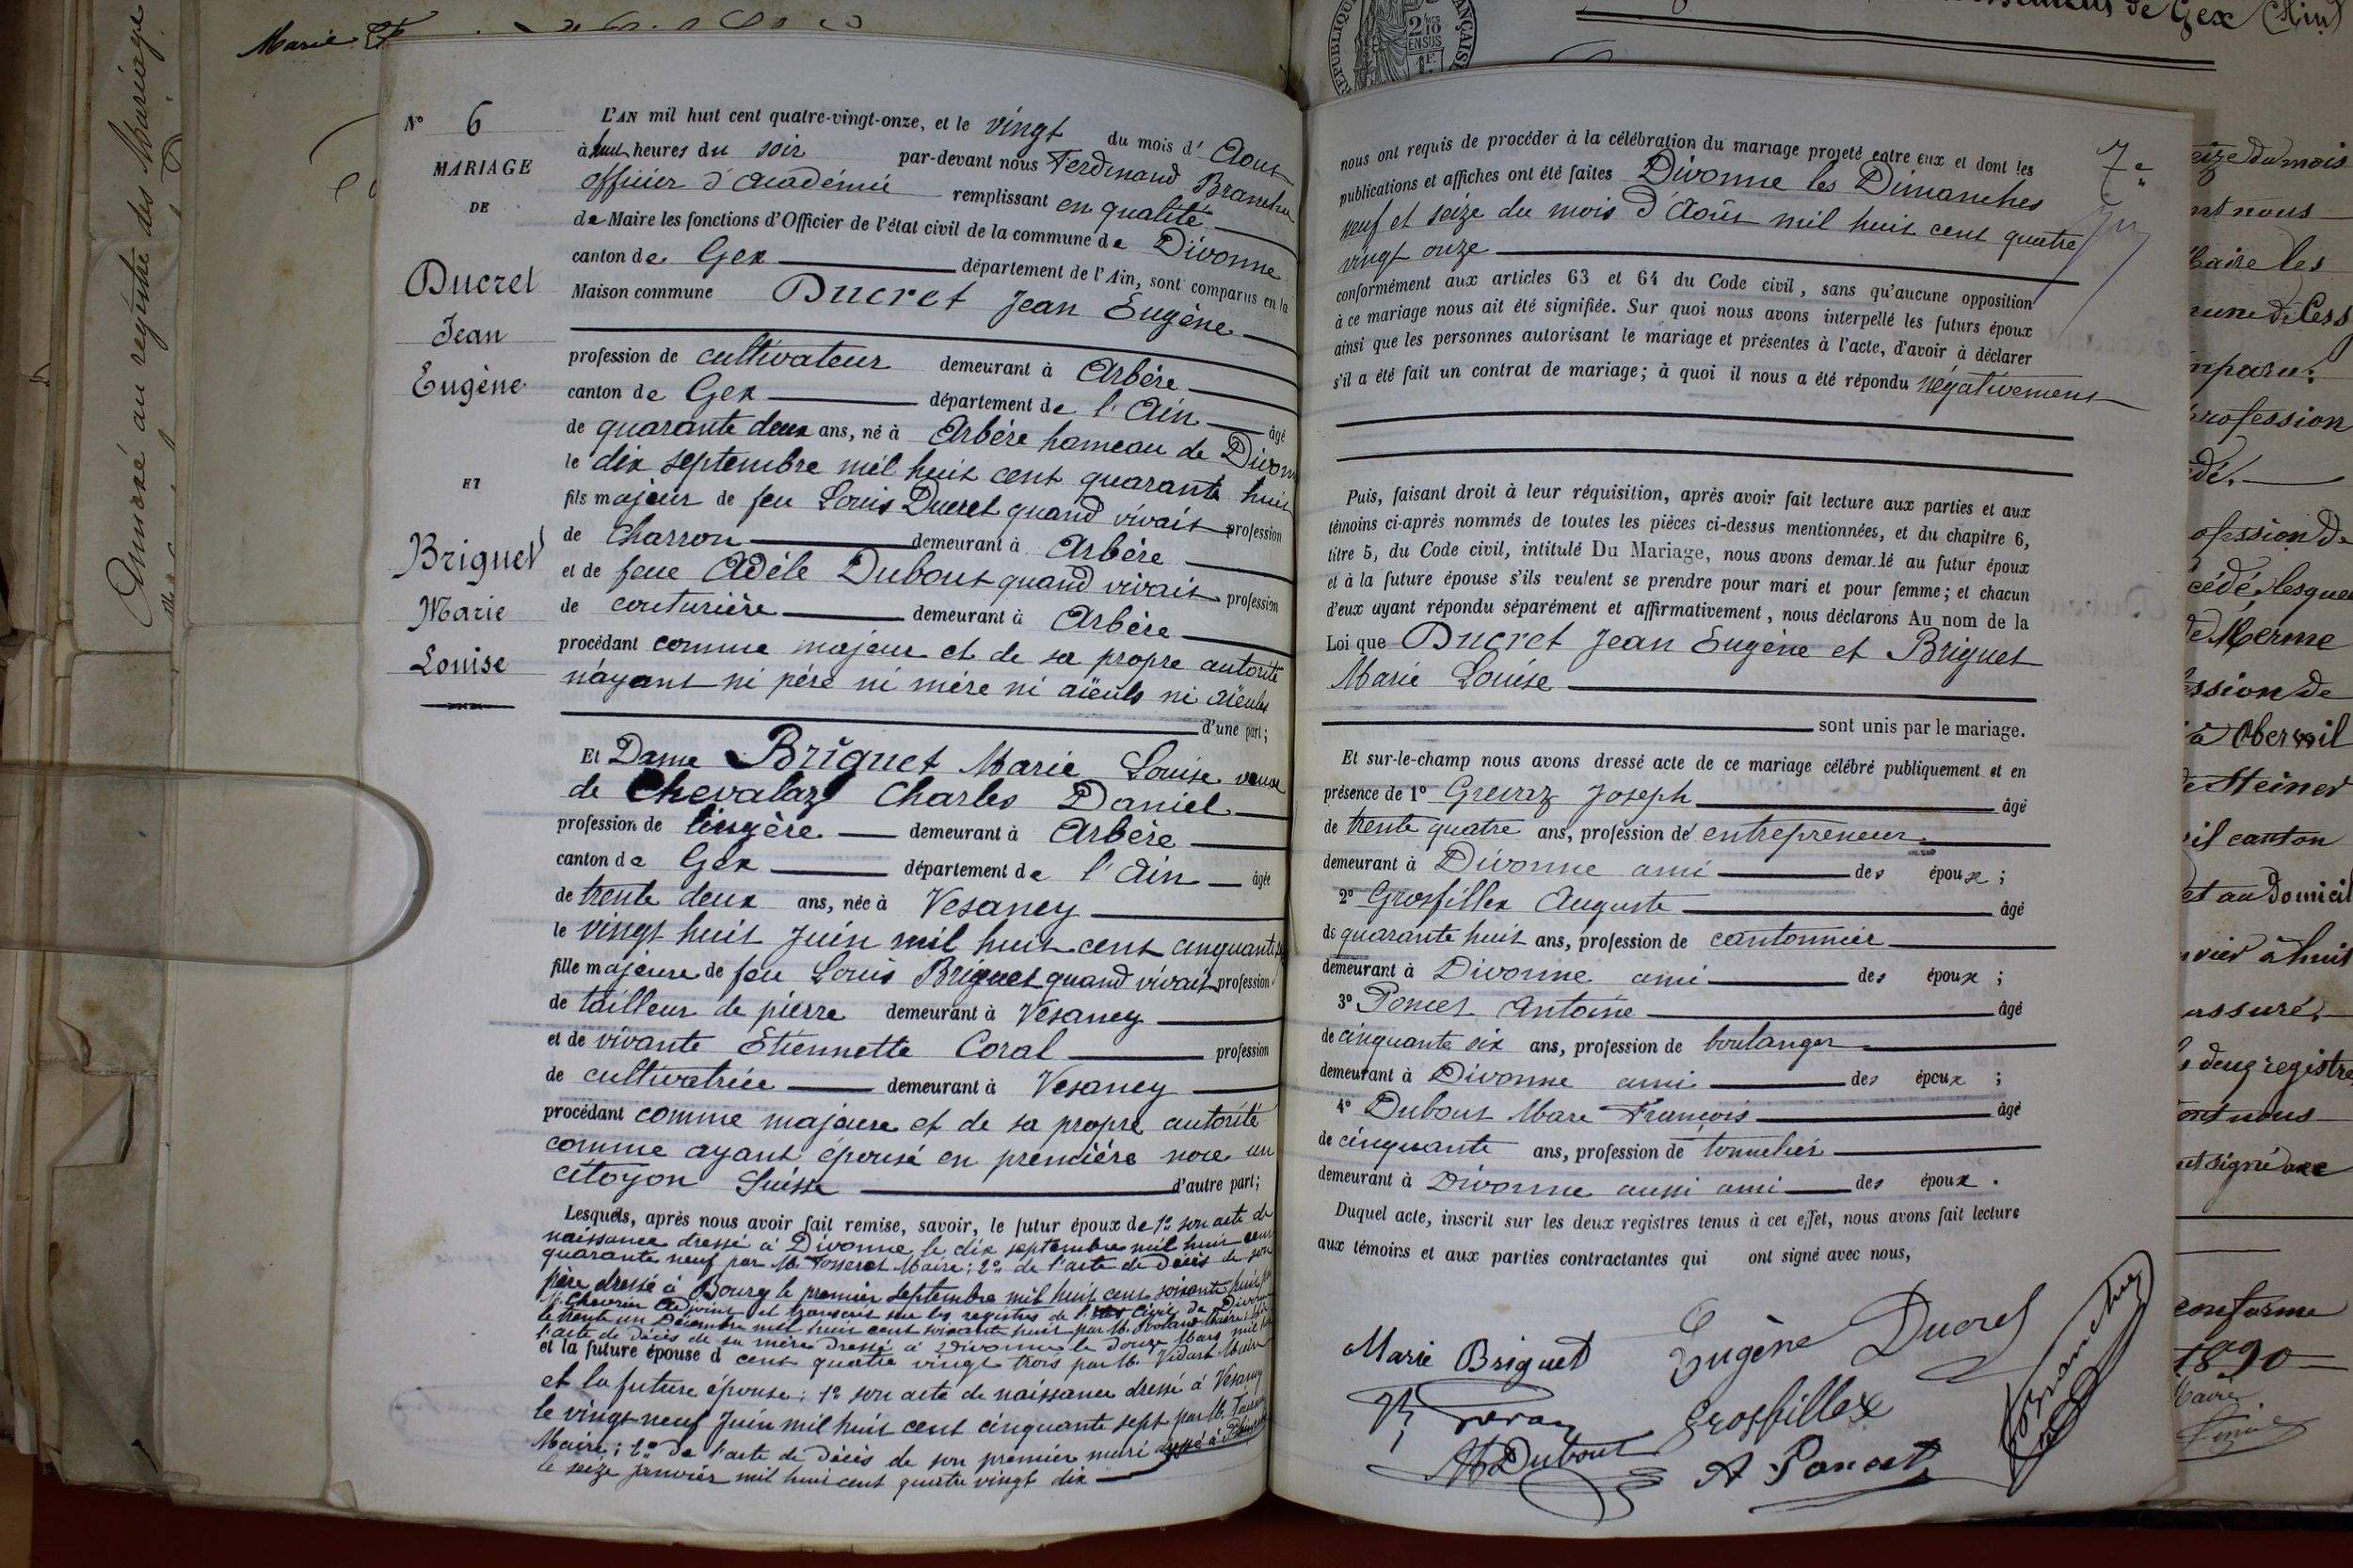 Annexé au registre des Mariages
Marie
N° 6
MARIAGE
DE
Ducret
Jean
Eugène
ET
Briguet
Marie
Louise
L'AN mil huit cent quatre-vingt-onze, et le vingt du mois d' Aout
à huit heures du soir par-devant nous Ferdinand Branchu
officier d'académie remplissant en qualité
de Maire les fonctions d'Officier de l'état civil de la commune de Divonne
canton de Gex département de l'Ain, sont comparus en la
Maison commune Ducret Jean Eugène
profession de cultivateur demeurant à Arbère
canton de Gex département de l'Ain âgé
de quarante deux ans, né à Arbère hameau de Divonn
le dix septembre mil huit cent quarante huit
fils majeur de feu Louis Ducret quand vivait profession
de Charron demeurant à Arbère
et de feue Adèle Dubout quand vivait profession
de couturière demeurant à Arbère
procédant comme majeur et de sa propre autorité
n'ayant ni père ni mère ni aïeuls ni aïeules
d'une part;
Et Dame Briguet Marie Louise veuve
de Chevalaz Charles Daniel
profession de lingère demeurant à Arbère
canton de Gex département de l'Ain âgée
de trente deux ans, née à Vesancy
le vingt huit Juin mil huit cent cinquante
fille majeure de feu Louis Briguet quand vivait profession
de tailleur de pierre demeurant à Vesancy
et de vivante Etiennette Coral profession
de cultivatrice demeurant à Vesancy
procédant comme majeure et de sa propre autorité
comme ayant épousé en première noce un
citoyen Suisse d'autre part;
Lesquels, après nous avoir fait remise, savoir, le futur époux de 1° son acte de
naissance dressé à Divonne le dix septembre mil huit cent
quarante neuf par M. Maire; 2° de l'acte de décès de son
père dressé à Bourg le premier septembre mil huit cent soixante huit par
M. Chevrier Adjoint et transcrit sur les registres de l'état civil de Divonne
le trente un Décembre mil huit cent soixante huit par M.
l'acte de décès de sa mère dressé à Divonne le douze Mars mil huit
et la future épouse d cent quatre vingt trois par M. Vidart Maire
et la future épouse: 1° son acte de naissance dressé à Vesancy
le vingt neuf Juin mil huit cent cinquante sept par M.
Maire; 2° de l'acte de décès de son premier mari dressé à
le seize janvier mil huit cent quatre vingt dix
nous ont requis de procéder à la célébration du mariage projeté entre eux et dont les
publications et affiches ont été faites Divonne les Dimanches
neuf et seize du mois d'Août mil huit cent quatre
vingt onze
conformément aux articles 63 et 64 du Code civil, sans qu'aucune opposition
à ce mariage nous ait été signifiée. Sur quoi nous avons interpellé les futurs époux
ainsi que les personnes autorisant le mariage et présentes à l'acte, d'avoir à déclarer
s'il a été fait un contrat de mariage; à quoi il nous a été répondu négativement
Puis, faisant droit à leur réquisition, après avoir fait lecture aux parties et aux
témoins ci-après nommés de toutes les pièces ci-dessus mentionnées, et du chapitre 6,
titre 5, du Code civil, intitulé Du Mariage, nous avons demandé au futur époux
et à la future épouse s'ils veulent se prendre pour mari et pour femme; et chacun
d'eux ayant répondu séparément et affirmativement, nous déclarons Au nom de la
Loi que Ducret Jean Eugène et Briguet
Marie Louise
sont unis par le mariage.
Et sur-le-champ nous avons dressé acte de ce mariage célébré publiquement et en
présence de 1° Grevaz Joseph âgé
de trente quatre ans, profession de entrepreneur
demeurant à Divonne ami des époux;
2° Grosfillex Auguste âgé
de quarante huit ans, profession de cantonnier
demeurant à Divonne ami des époux;
3° Poncet Antoine âgé
de cinquante six ans, profession de boulanger
demeurant à Divonne ami des époux;
4° Dubout Marc François âgé
de cinquante ans, profession de tonnelier
demeurant à Divonne aussi ami des époux.
Duquel acte, inscrit sur les deux registres tenus à cet effet, nous avons fait lecture
aux témoins et aux parties contractantes qui ont signé avec nous,
Marie Briguet Eugène Ducret
Grosfillex
Dubout A Poncet
de Gex (Ain)
eize du mois
nt nous
Maire les
rofession
dé.
ofession de
cédé, lesque
de Merme
ession de
à Oberwil
de Steiner
il canton
et au domicil
vier à huit
assuré
deux registre
ont nous
conforme
1890